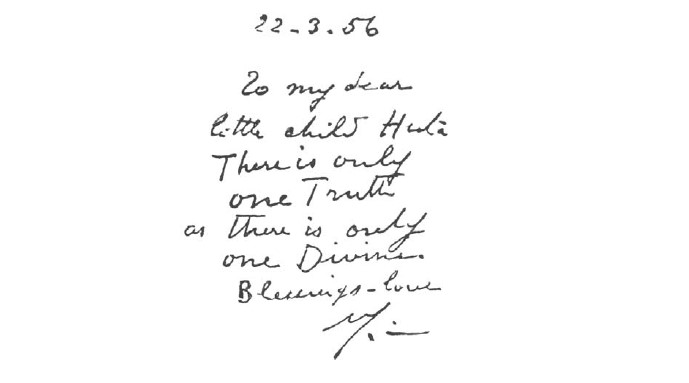 22-3.56
To my dear
little child Huta
There is only
one Truth
as there is only
one Divine.
Blessings-love